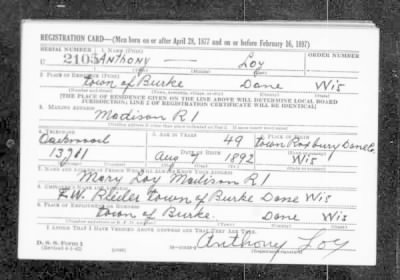 REGISTRATION CARD—(Men born on or after April 28, 1877 and on or before February 16, 1897)
SERIAL NUMBER 1. NAME (Print) ORDER NUMBER
2105 ANTHONY — Loy
(First) (Middle) (Last)
2. PLACE OF RESIDENCE (Print)
Town of Burke Dane Wis
(Number and street) (Town, township, village, or city) (County) (State)
[THE PLACE OF RESIDENCE GIVEN ON THE LINE ABOVE WILL DETERMINE LOCAL BOARD
JURISDICTION; LINE 2 OF REGISTRATION CERTIFICATE WILL BE IDENTICAL]
3. MAILING ADDRESS
Madison R1
[Mailing address if other than place indicated on line 2. If same insert word same]
4. TELEPHONE 5. AGE IN YEARS 6. PLACE OF BIRTH
Oakwood 49 Town Roxbury Dane Co
DATE OF BIRTH
1376J Aug 7 1892 Wis
7. NAME AND ADDRESS OF PERSON WHO WILL ALWAYS KNOW YOUR ADDRESS
Mary Loy Madison R1
8. EMPLOYER'S NAME AND ADDRESS
Town of Burke Dane Wis
9. PLACE OF EMPLOYMENT OR BUSINESS
Town of Burke. Dane Wis
I AFFIRM THAT I HAVE VERIFIED ABOVE ANSWERS AND THAT THEY ARE TRUE.
D. S. S. Form 1
Anthony Loy